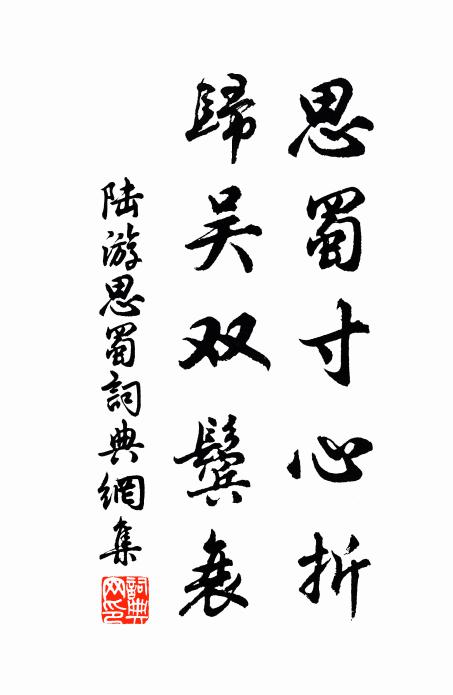 思蜀寸心折
歸吴双鬓衰
陆游思蜀詞典網集
詞典网印